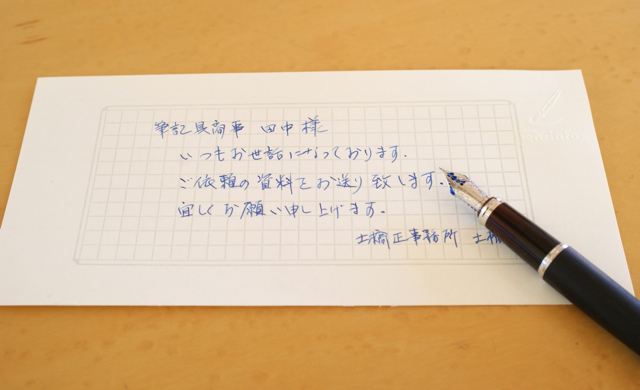 筆記具商事 田中様
いつもお世話になっております.
ご依頼の資料をお送り致します.
宜しくお願い申し上げます.
土橋正事務所 土橋